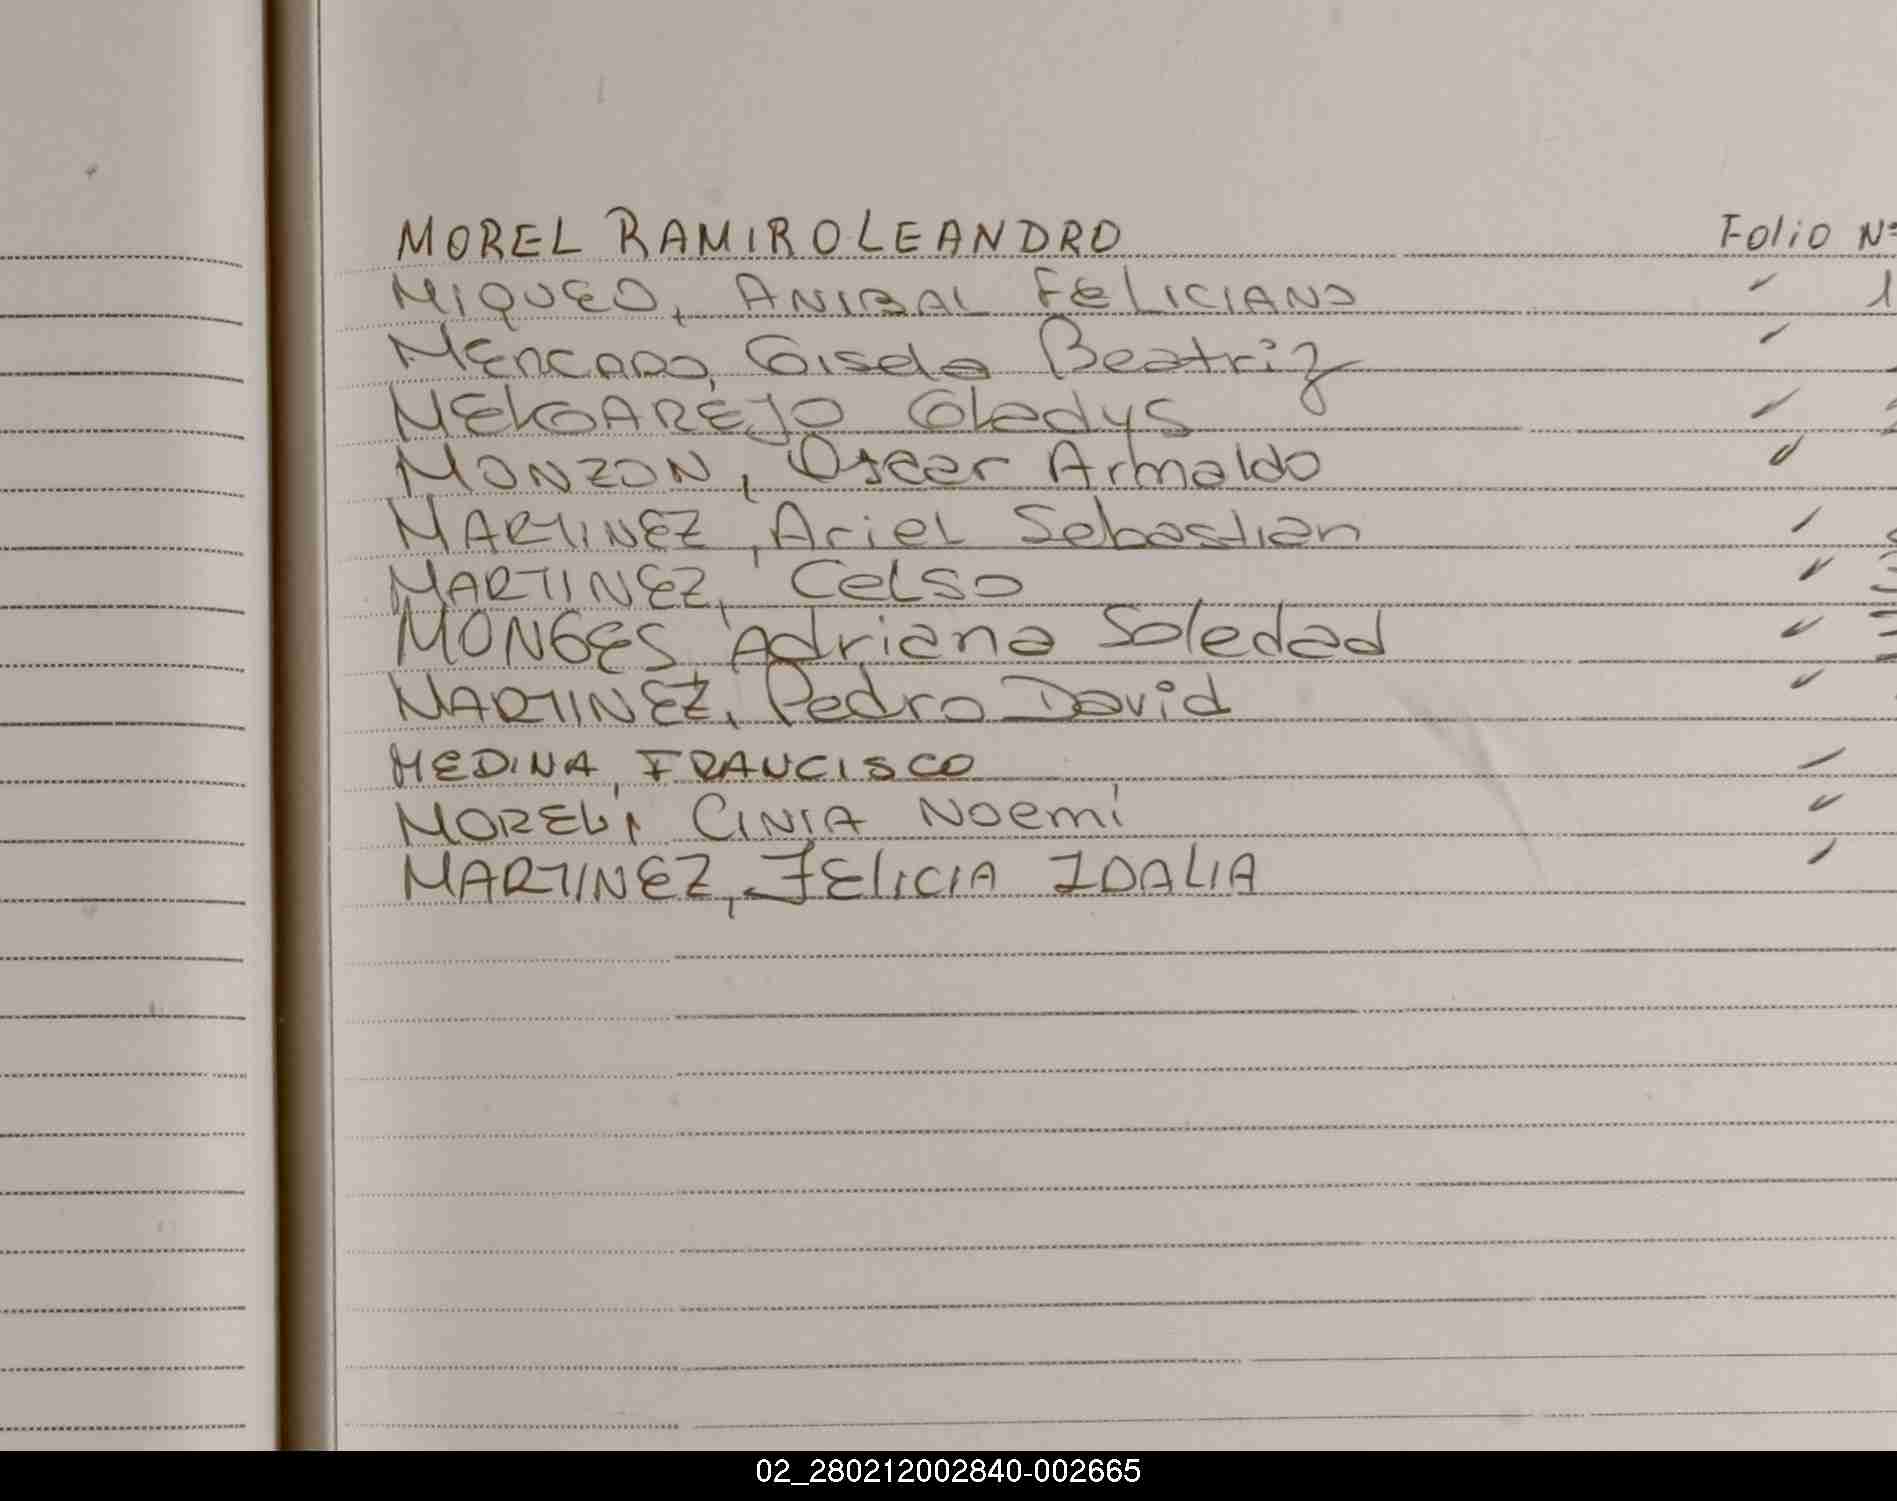 MOREL RAMIRO LEANDRO Folio Nº
MIQUEO, ANIBAL FELICIANO " 1
MERCADO, Gisela Beatriz "
MELGAREJO Gladys "
MONZON, Oscar Arnaldo "
MARTINEZ, Ariel Sebastian "
MARTINEZ, Celso "
MONGES, Adriana Soledad "
MARTINEZ, Pedro David "
MEDINA, FRANCISCO "
MOREL, CINIA Noemí "
MARTINEZ, FELICIA IDALIA "
02_280212002840-002665